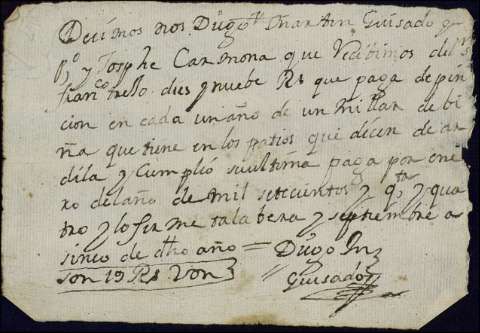 Decimos nos Diego Martin Guisado
y Josephe Carmona que Recibimos del
trello dies y nuebe Rs que paga de pen
cion en cada un año de un millar de bi
ña que tiene en los patios que dicen de ar
dila y Cumplió su ultima paga por ene
ro del año de mil setecientos y qta y qua
tro y lo firme talabera y septiembre a
sinco de dho año = Diego Mn
son 19 Rs Von Guisado